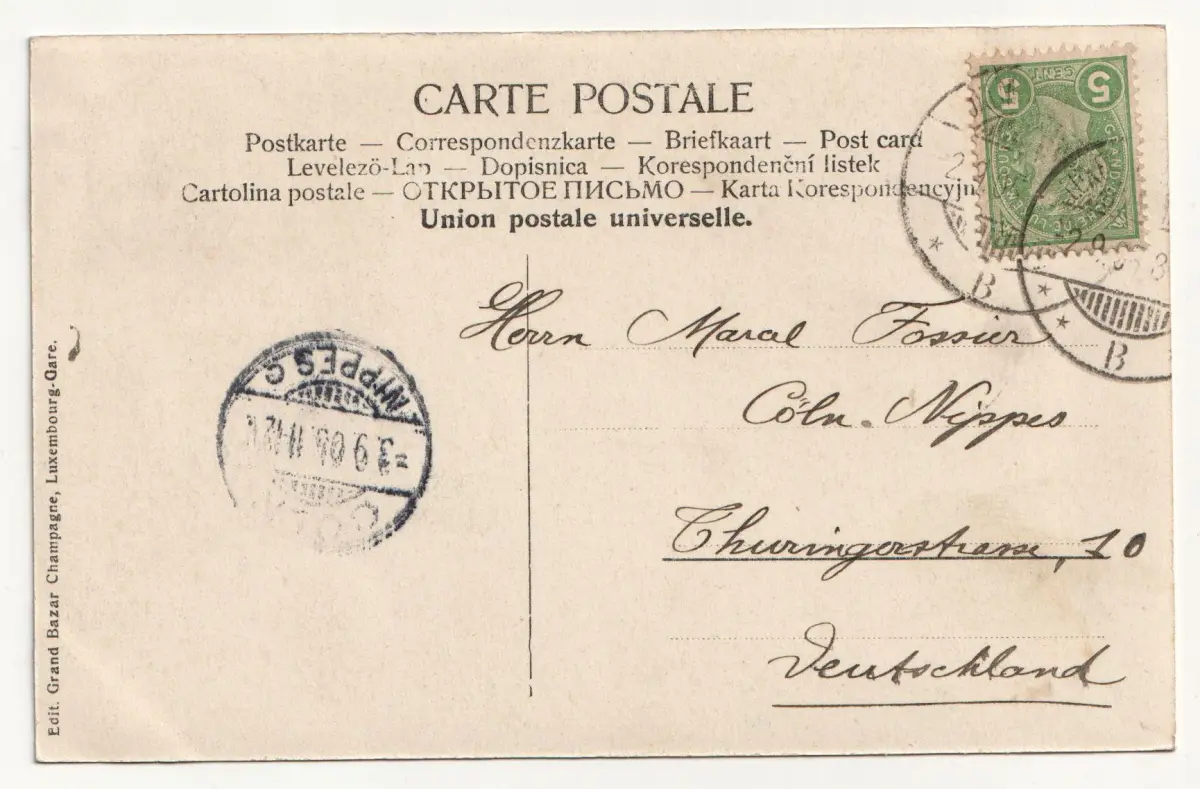 CARTE POSTALE
Postkarte — Correspondenzkarte — Briefkaart — Post card
Levelező-Lap — Dopisnica — Korespondenční listek
Cartolina postale — ОТКРЫТОЕ ПИСЬМО — Karta Korespondencyjn
Union postale universelle.
5 CENT. 5
GRAND
B
B
Herrn Marcal Fossier
Cöln. Nippes
Thuringerstrasse, 10
Deutschland
NIPPES C
3 9 11-12
Edit. Grand Bazar Champagne, Luxembourg-Gare.